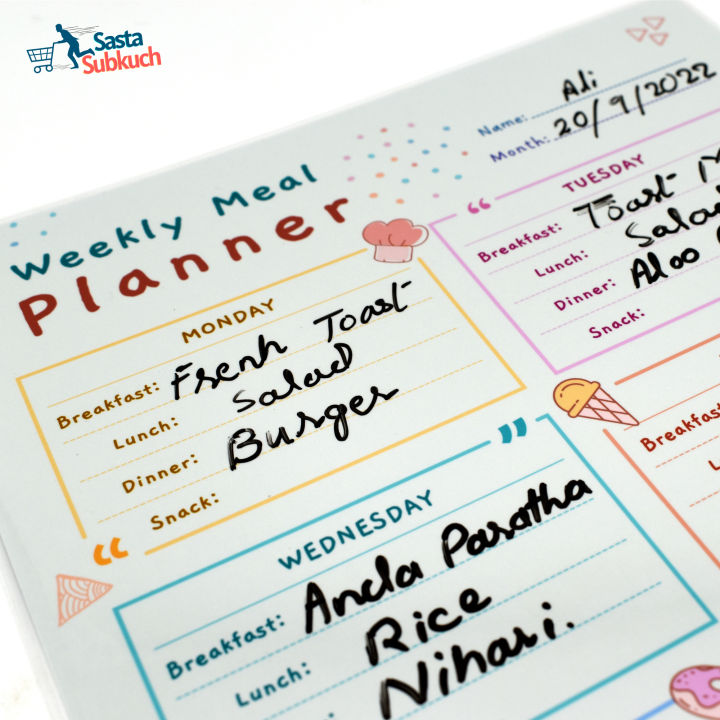 Sasta
Subkuch
Name: Ali
Month: 20/9/2022
Weekly Meal
Planner
MONDAY
Breakfast: Frenh Toast
Lunch: Salad
Dinner: Burger
Snack:
TUESDAY
Breakfast: Toast
Lunch: Salad
Dinner: Aloo
Snack:
WEDNESDAY
Breakfast: Anda Paratha
Lunch: Rice
Nihari.
Breakfast: